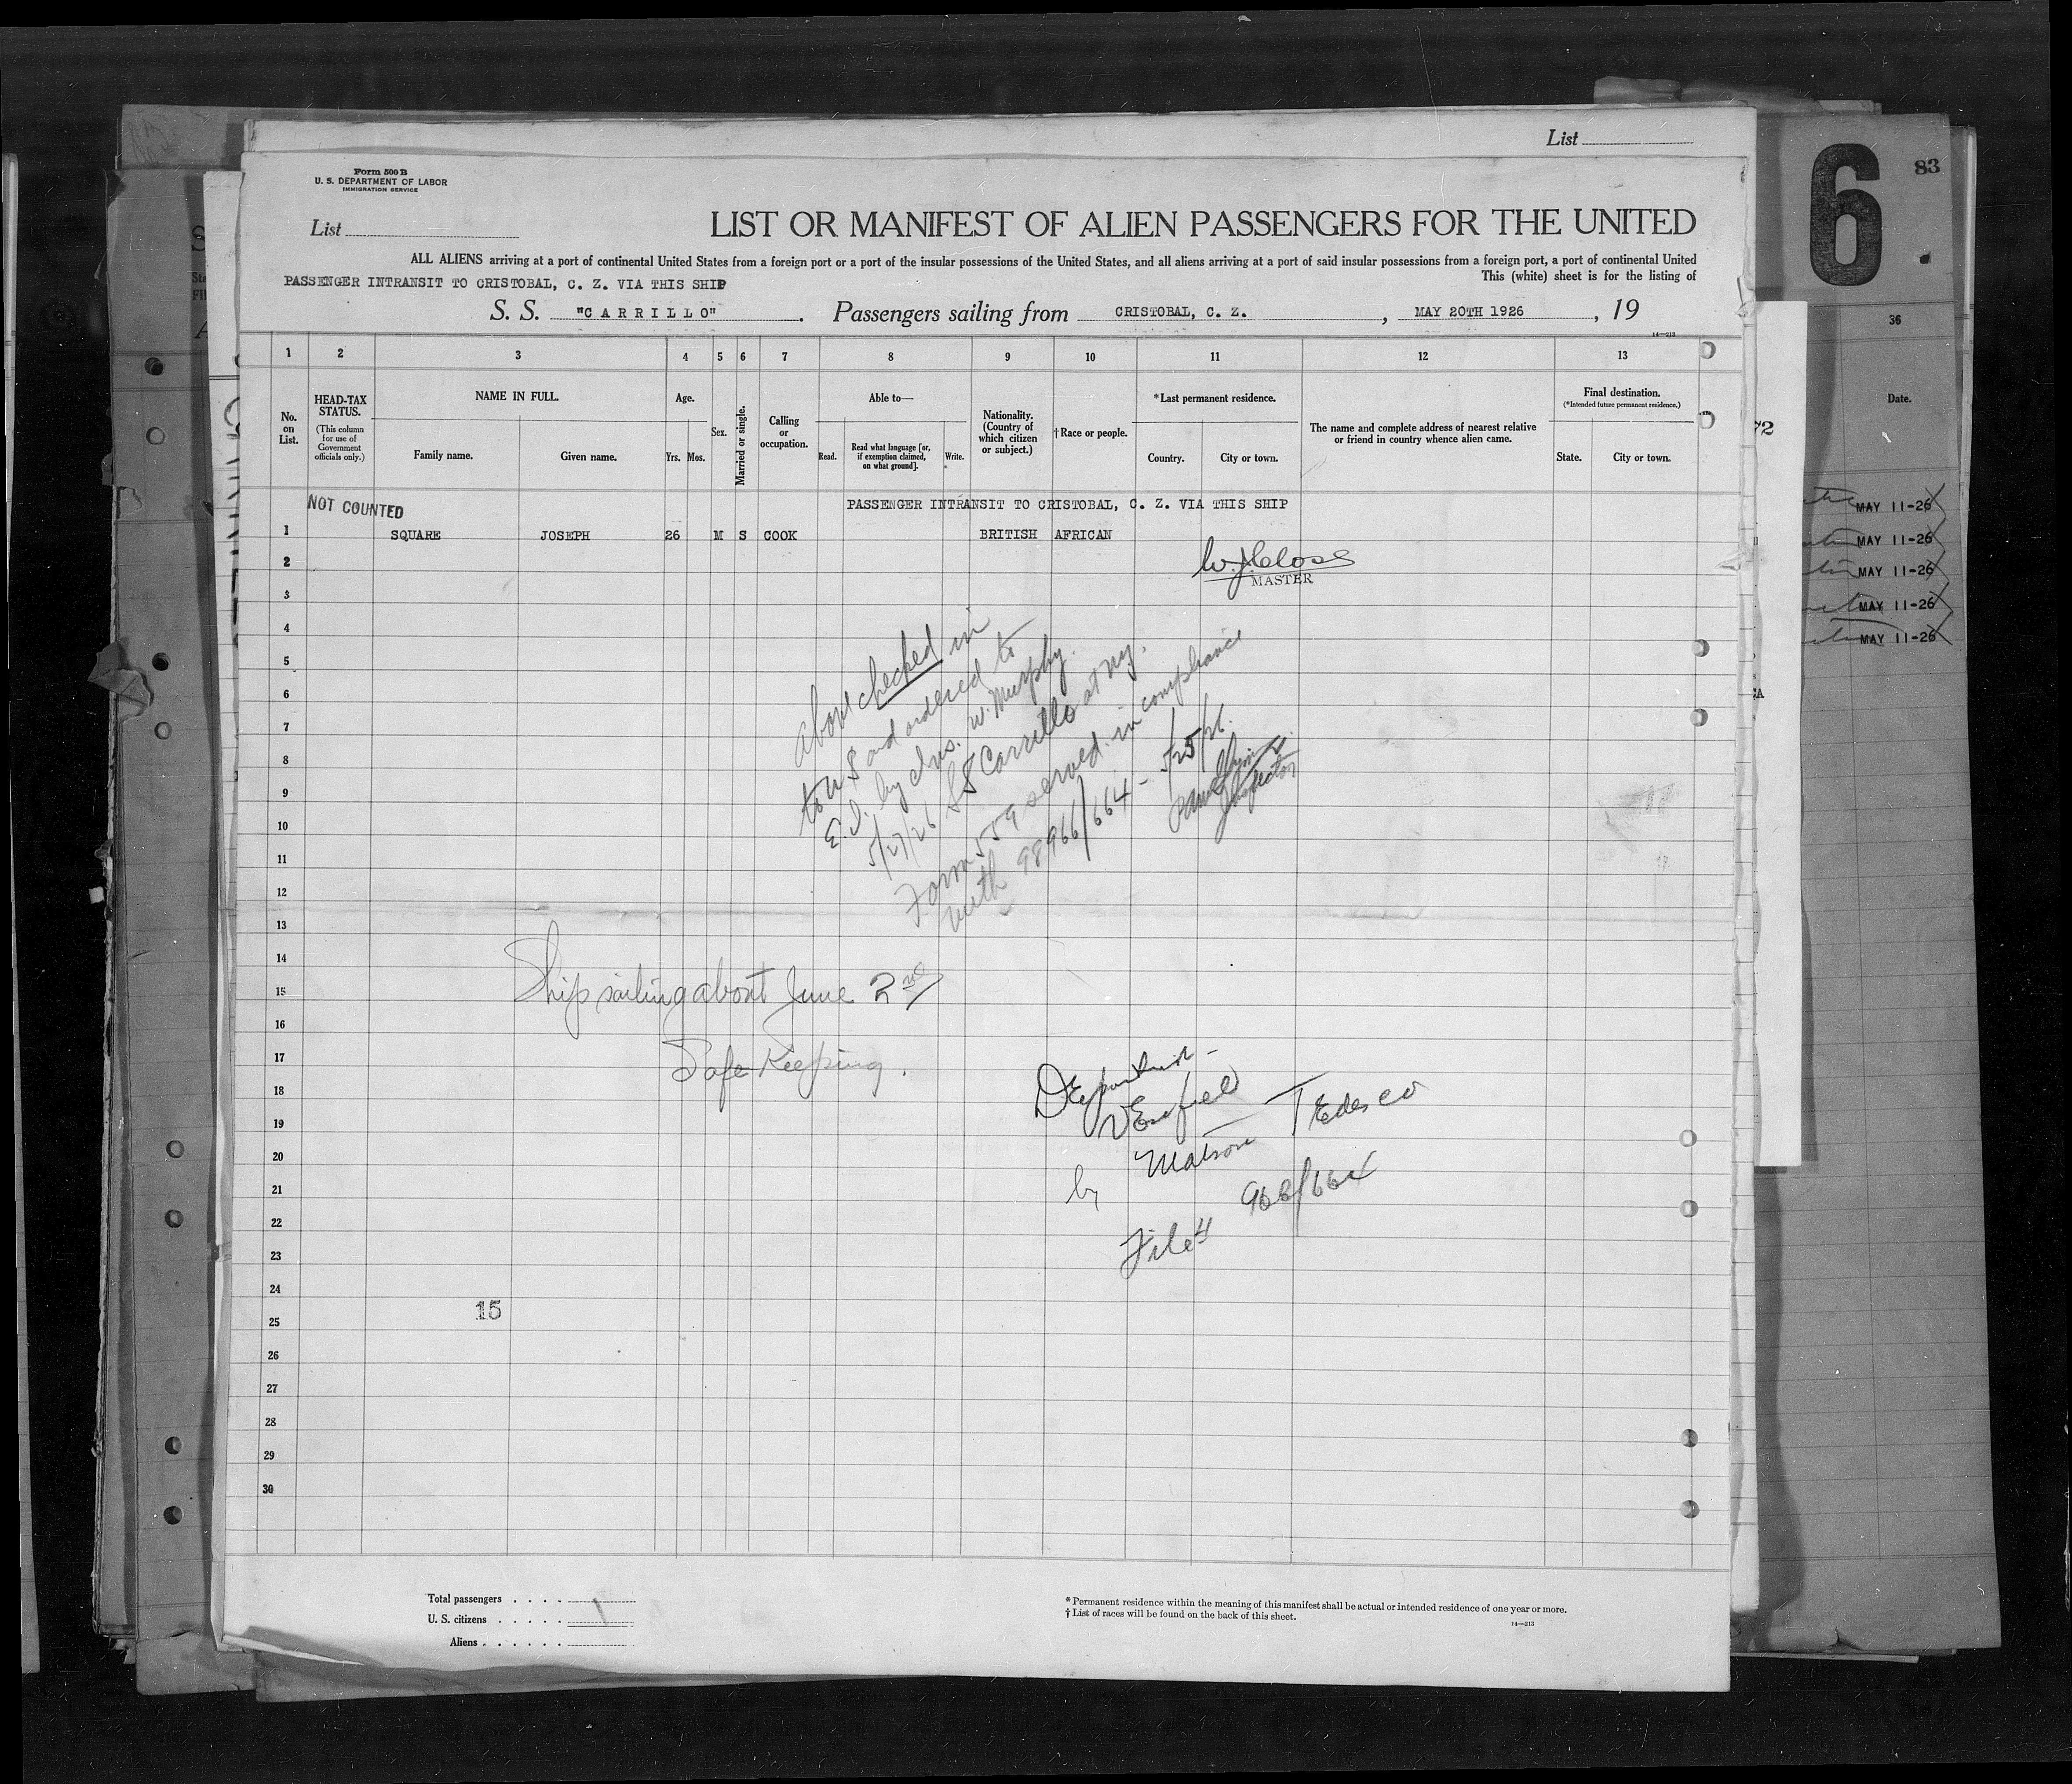 List
6
83
Form 500 B
U. S. DEPARTMENT OF LABOR
IMMIGRATION SERVICE
List
LIST OR MANIFEST OF ALIEN PASSENGERS FOR THE UNITED
ALL ALIENS arriving at a port of continental United States from a foreign port or a port of the insular possessions of the United States, and all aliens arriving at a port of said insular possessions from a foreign port, a port of continental United
This (white) sheet is for the listing of
PASSENGER INTRANSIT TO CRISTOBAL, C. Z. VIA THIS SHIP
S. S. "CARRILLO". Passengers sailing from CRISTOBAL, C. Z., MAY 20TH 1926, 19
14—213
36
1 2 3 4 5 6 7 8 9 10 11 12 13
No. on List.
HEAD-TAX STATUS.
(This column for use of Government officials only.)
NAME IN FULL.
Family name. Given name.
Age.
Yrs. Mos.
Sex.
Married or single.
Calling or occupation.
Able to—
Read. Read what language [or, if exemption claimed, on what ground]. Write.
Nationality. (Country of which citizen or subject.)
†Race or people.
*Last permanent residence.
Country. City or town.
The name and complete address of nearest relative or friend in country whence alien came.
Final destination.
(*Intended future permanent residence.)
State. City or town.
Date.
72
NOT COUNTED
PASSENGER INTRANSIT TO CRISTOBAL, C. Z. VIA THIS SHIP
1 SQUARE JOSEPH 26 M S COOK BRITISH AFRICAN
W. J. Close
MASTER
MAY 11-26
MAY 11-26
MAY 11-26
MAY 11-26
MAY 11-26
2
3
4
5
6
7
8
9
10
11
12
13
14
15
16
17
18
19
20
21
22
23
24
25
26
27
28
29
30
above checked in
to U S and ordered to
E.I. by Ins. W. Murphy.
5/27/26 SS Carrillo at NY.
Form 559 served in compliance
with 98966/664 - 5/25/26.
Inspector
Ship sailing about June 2nd
Safe Keeping.
Deportation
Verified
by Matron Tedesco
File# 966/664
15
Total passengers
U. S. citizens 1
Aliens
*Permanent residence within the meaning of this manifest shall be actual or intended residence of one year or more.
†List of races will be found on the back of this sheet.
14—213